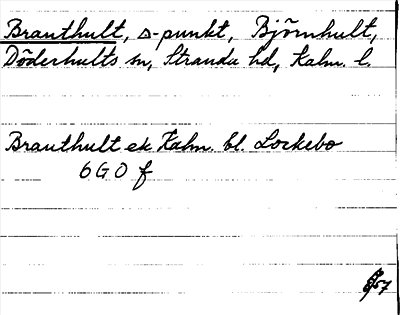 Branthult, s-punkt, Björnhult,
Döderhults sn, Stranda hd, Kalm. l.
Branthult ek Kalm. bl. Lockebo
6 G 0 f